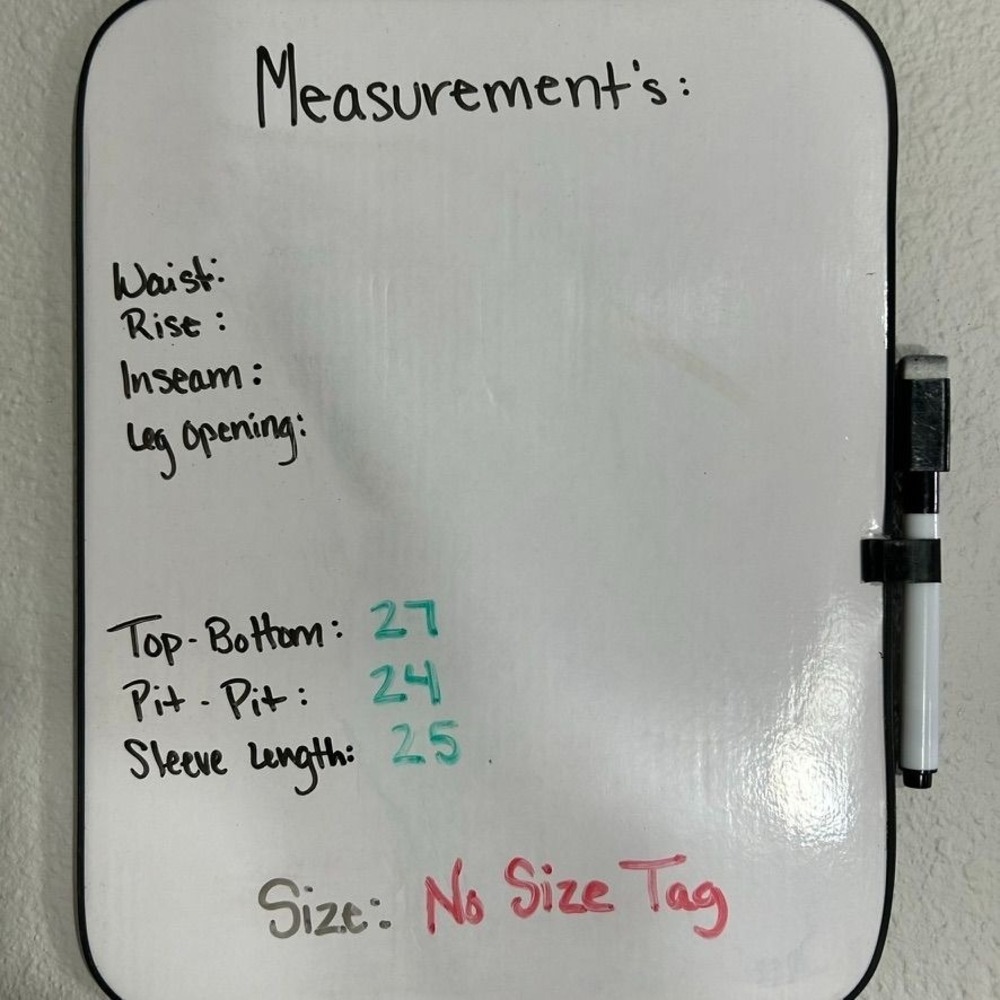 Measurement's:
Waist:
Rise:
Inseam:
Leg Opening:
Top-Bottom: 27
Pit-Pit: 24
Sleeve Length: 25
Size: No Size Tag